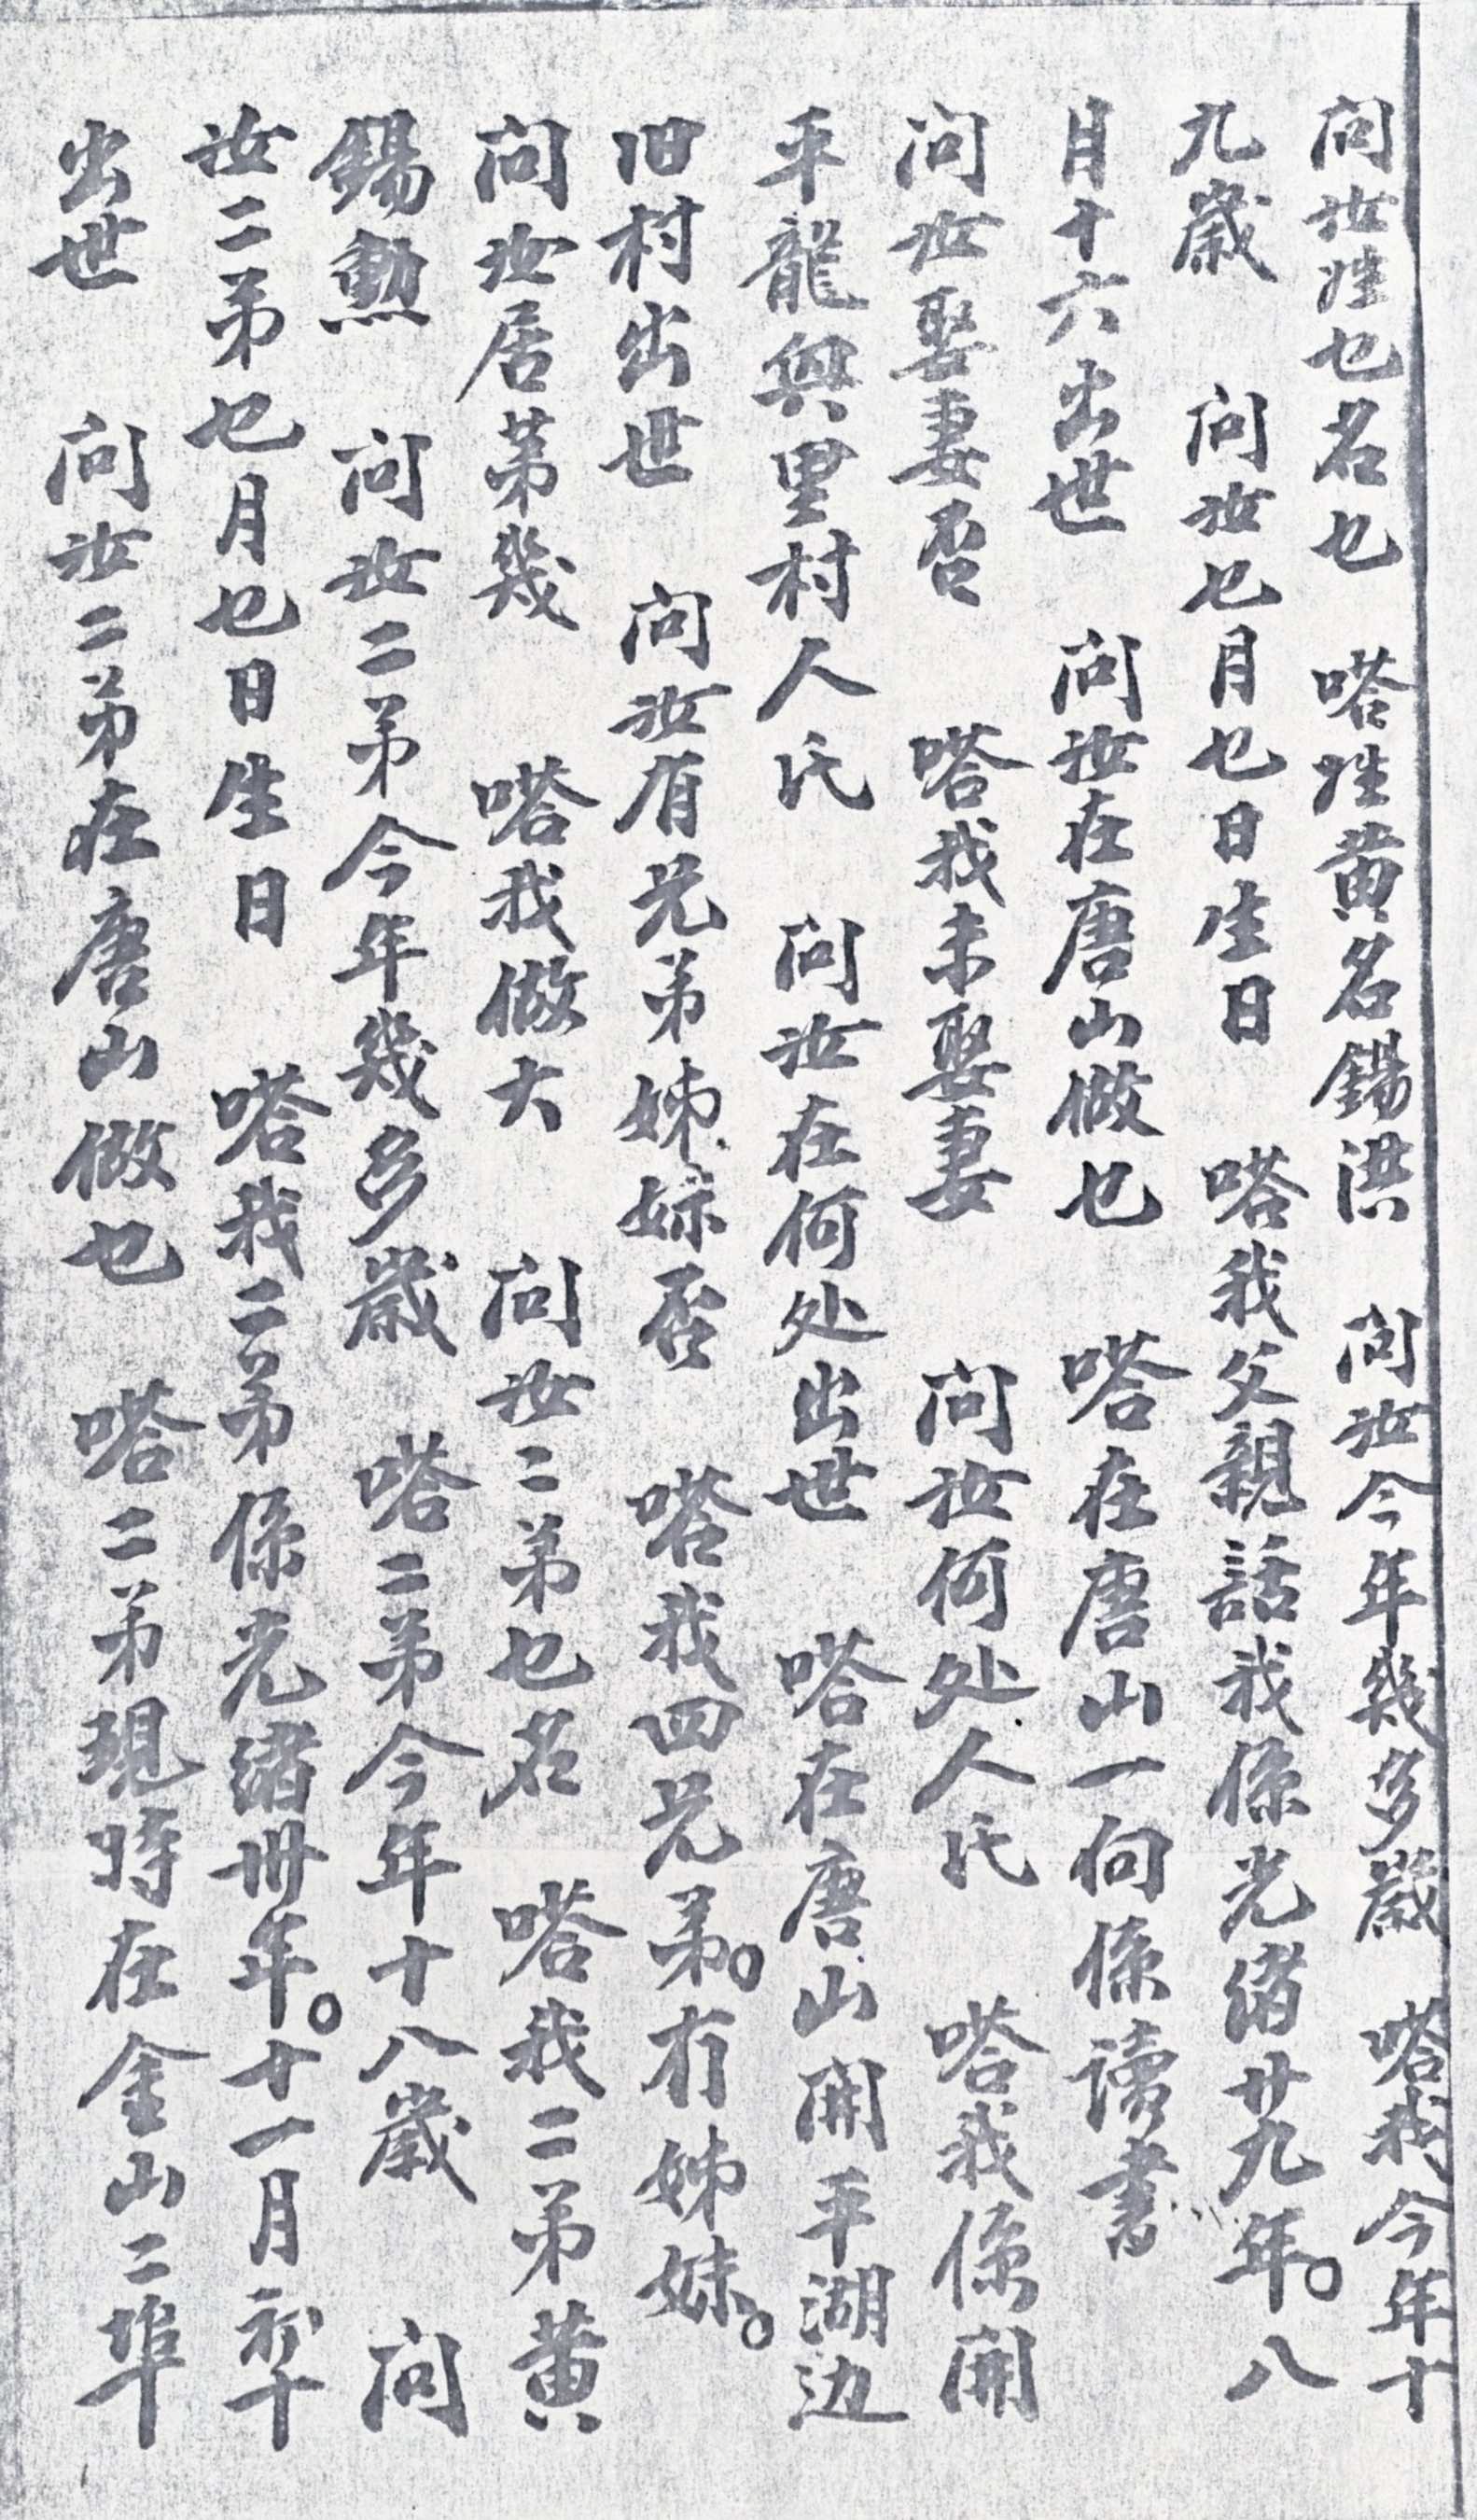 问汝姓乜名乜 嗒姓黄名錫洪 问汝今年幾多歲 嗒我今年十
九歲 问汝乜月乜日生日 嗒我父親話我係光緒廿九年。八
月十六出世 问汝在唐山做乜 嗒在唐山一向係讀書
问汝娶妻否 嗒我未娶妻 问汝何处人氏 嗒我係開
平龍興里村人氏 问汝在何处出世 嗒在唐山開平湖边
旧村出世 问汝有兄弟姊妹否 嗒我四兄弟。冇姊妹。
问汝居第幾 嗒我做大 问汝二弟乜名 嗒我二弟黄
錫勲 问汝二弟今年幾多歲 嗒二弟今年十八歲 问
汝二弟乜月乜日生日 嗒我二弟係光緒卅年。十一月初十
出世 问汝二弟在唐山做乜 嗒二弟現時在金山二埠